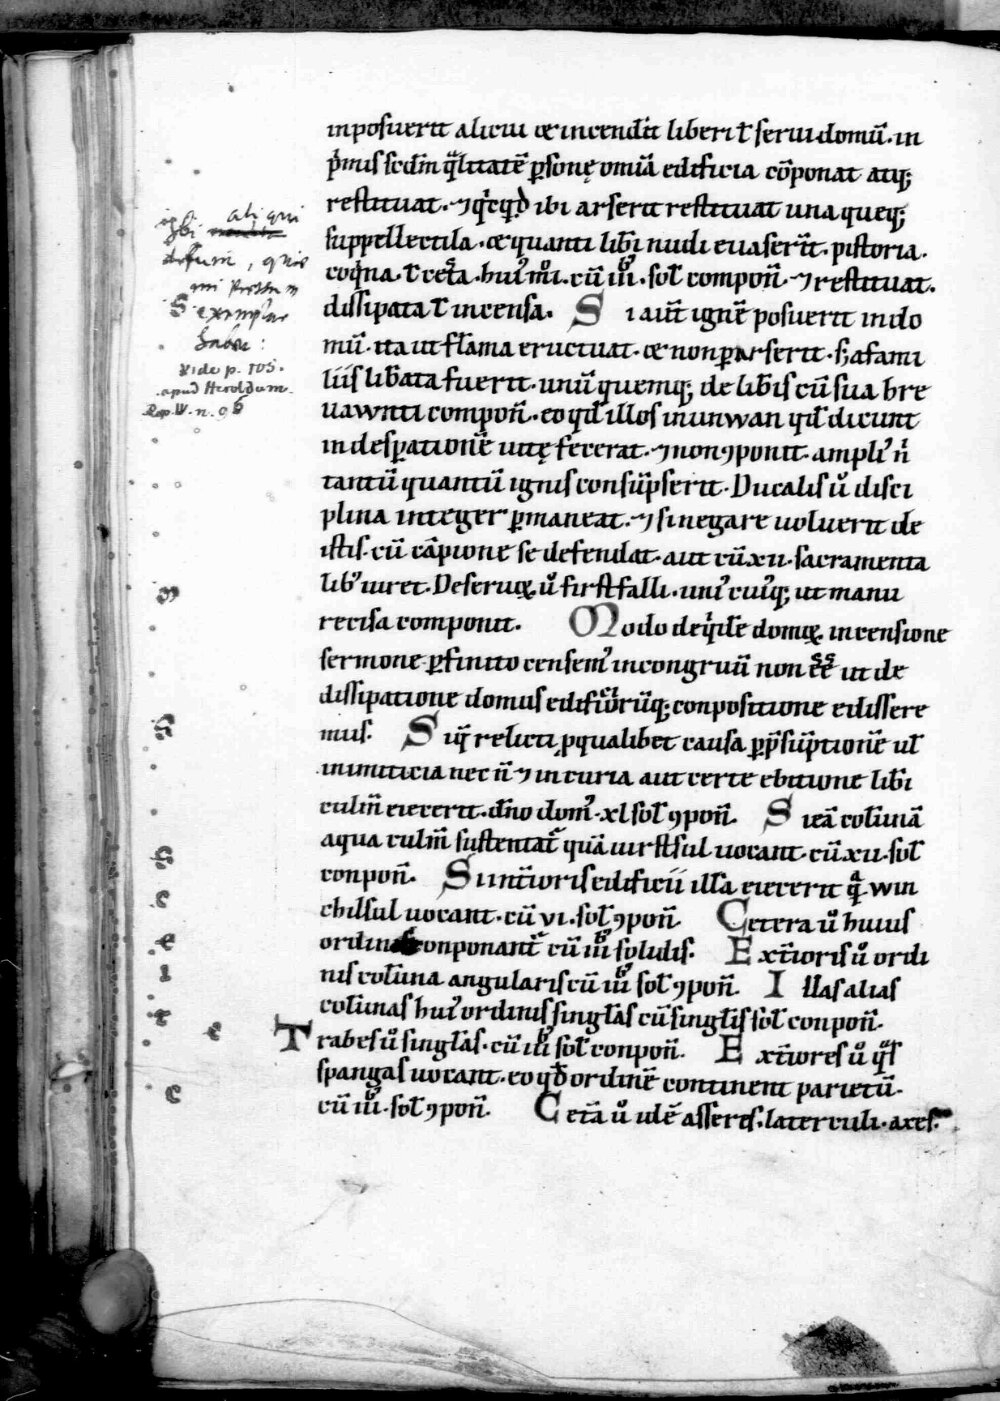 inposuerit alicui & incend̄it liberi ł serui domū. in
p̍mis scd̄m q̄litatē ꝑsonę om̄ia edificia cōponat atq;
restituat. ⁊ q̍cq̍d ibi arserit restituat una queq;
suppellectila. & quanti lib̄i nudi euaser̄t. pistoria.
coq̍na. ł cet̄a. hui᾽ m̊i. cū iiii᷒. sol̄ compon̄. ⁊ restituat.
dissipata ł incensa. Si aut̄ ignē posuerit in do
mū. ita ut fl̄ama eructuat. & non ꝑarserit. s; a fami
liis lib̄ata fuerit. unū quemq; de lib̄is cū sua hre
uawnti compon̄. eo qd̄ illos inunwan qd̄ dicunt
in desꝑationē uitę fecerat. ⁊ non ꝯponit. ampli᾽ n̍
tantū quantū ignis consūpserit. Ducalis ů disci
plina integer ꝑmaneat. ⁊ si negare uoluerit de
istis. cū cāpione se defendat. aut cū xii. sacramenta
lib᾽ iuret. De seruoꝝ ů firstfalli. uni᾽ cui᾽q; ut manu
recisa componit. Modo de q̍dē domoꝝ. incensione
sermone ꝑfinito censem᾽ incongruū non ēē ut de
dissipatione domus edificioꝝūq; conpositione edissere
mus. Siq̍ relicti ꝑ qualibet causa ꝑ p̄sūptionē ul̄
inimiticia nec n̄ ⁊ incuria aut certe ebitione lib̄i
culm̄ eiecerit. dn̄o dom᾽. xl sol̄ ꝯpon̄. Si eā col̄ūnā
aqua culm̄ sustentat᷒ quā uirstsul uocant. cū xii. sol̄
conpon̄. Si int̄ioris edificii illā eiecerit q̄ win
chilsul uocant. cū vi. sol̄ ꝯpon̄. Cetera ů huius
ordinis conponant᷒ cū iii᷒ solidis. Ext̄ioris ů ordi
nis col̄ūna angularis cū iii᷒ sol̄ ꝯpon̄. Illas alias
col̄ūnas hui᾽ ordinis singl̄as cū singl̄is sol̄ conpon̄.
Trabes ů singl̄as. cū iii᷒ sol̄ conpon̄. Ext̄iores ů q̄s
spangas uocant. eo qd̄ ordinē continent parietū.
cū iii᷒. sol̄ ꝯpon̄. Cet̄a ů ul̄ē asseres. laterculi. axes.
aliqui
quis
exemplar
vide p. 105.
apud Heroldum.